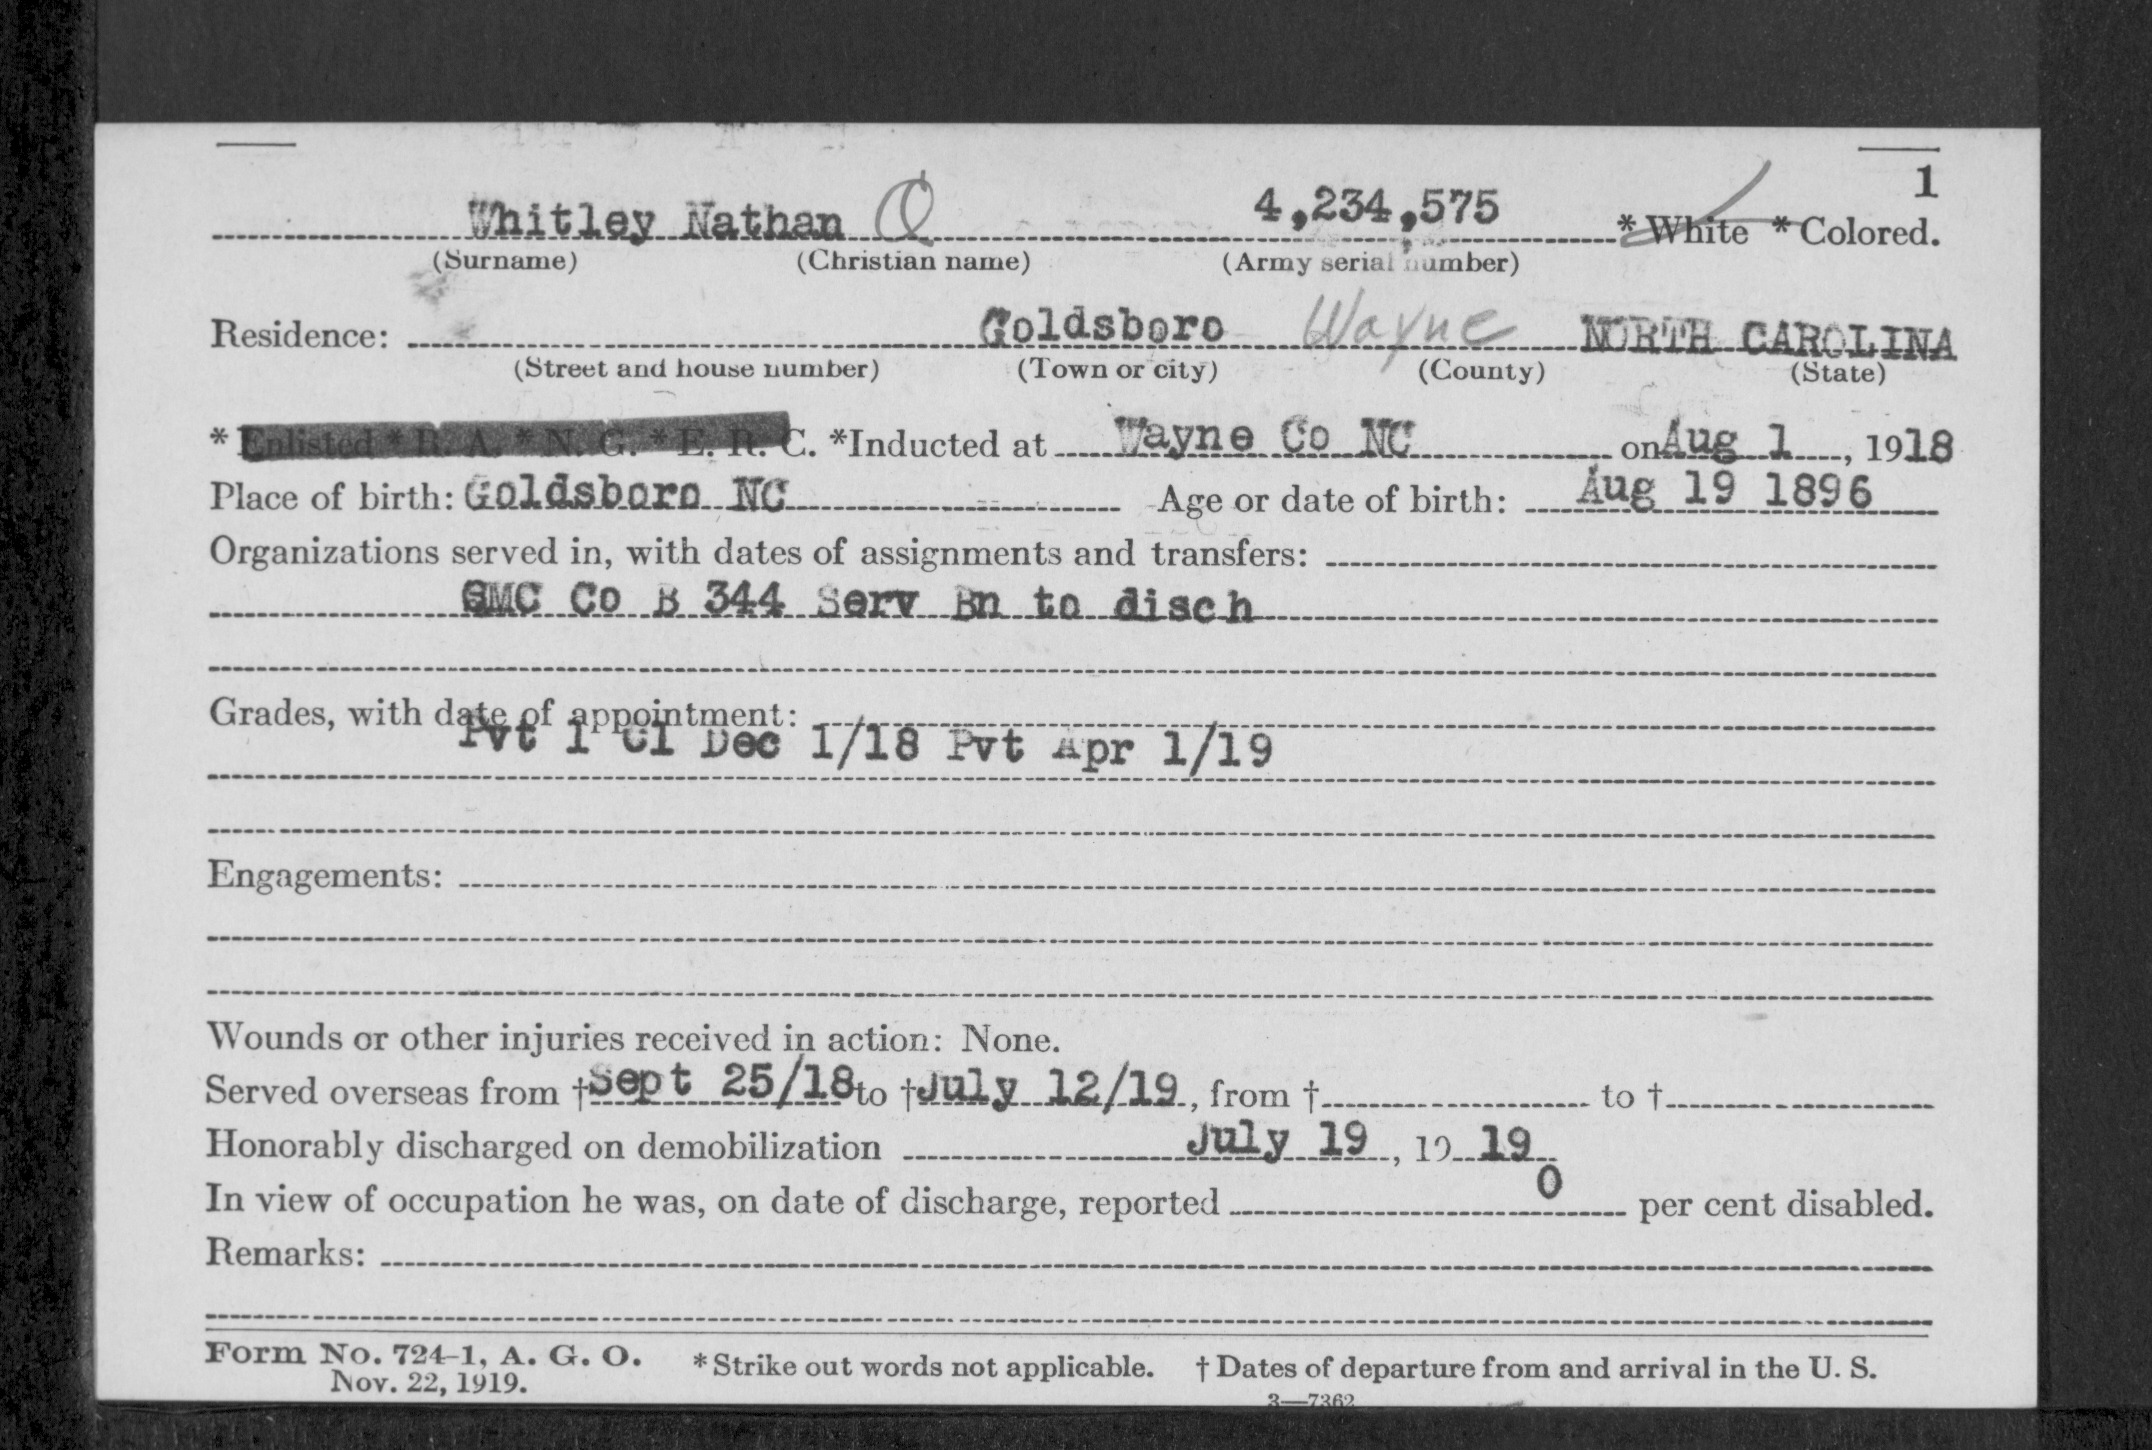 1
Whitley Nathan 4,234,575 * White * Colored.
(Surname) (Christian name) (Army serial number)
Residence: Goldsboro Wayne NORTH CAROLINA
(Street and house number) (Town or city) (County) (State)
* Enlisted * R. A. * N. G. * E. R. C. *Inducted at Wayne Co NC on Aug 1, 1918
Place of birth: Goldsboro NC Age or date of birth: Aug 19 1896
Organizations served in, with dates of assignments and transfers:
QMC Co B 344 Serv Bn to disch
Grades, with date of appointment:
Pvt 1 Cl Dec 1/18 Pvt Apr 1/19
Engagements:
Wounds or other injuries received in action: None.
Served overseas from † Sept 25/18 to † July 12/19, from † to †
Honorably discharged on demobilization July 19, 19 19
In view of occupation he was, on date of discharge, reported 0 per cent disabled.
Remarks:
Form No. 724-1, A. G. O. * Strike out words not applicable. † Dates of departure from and arrival in the U. S.
Nov. 22, 1919.
3—7362